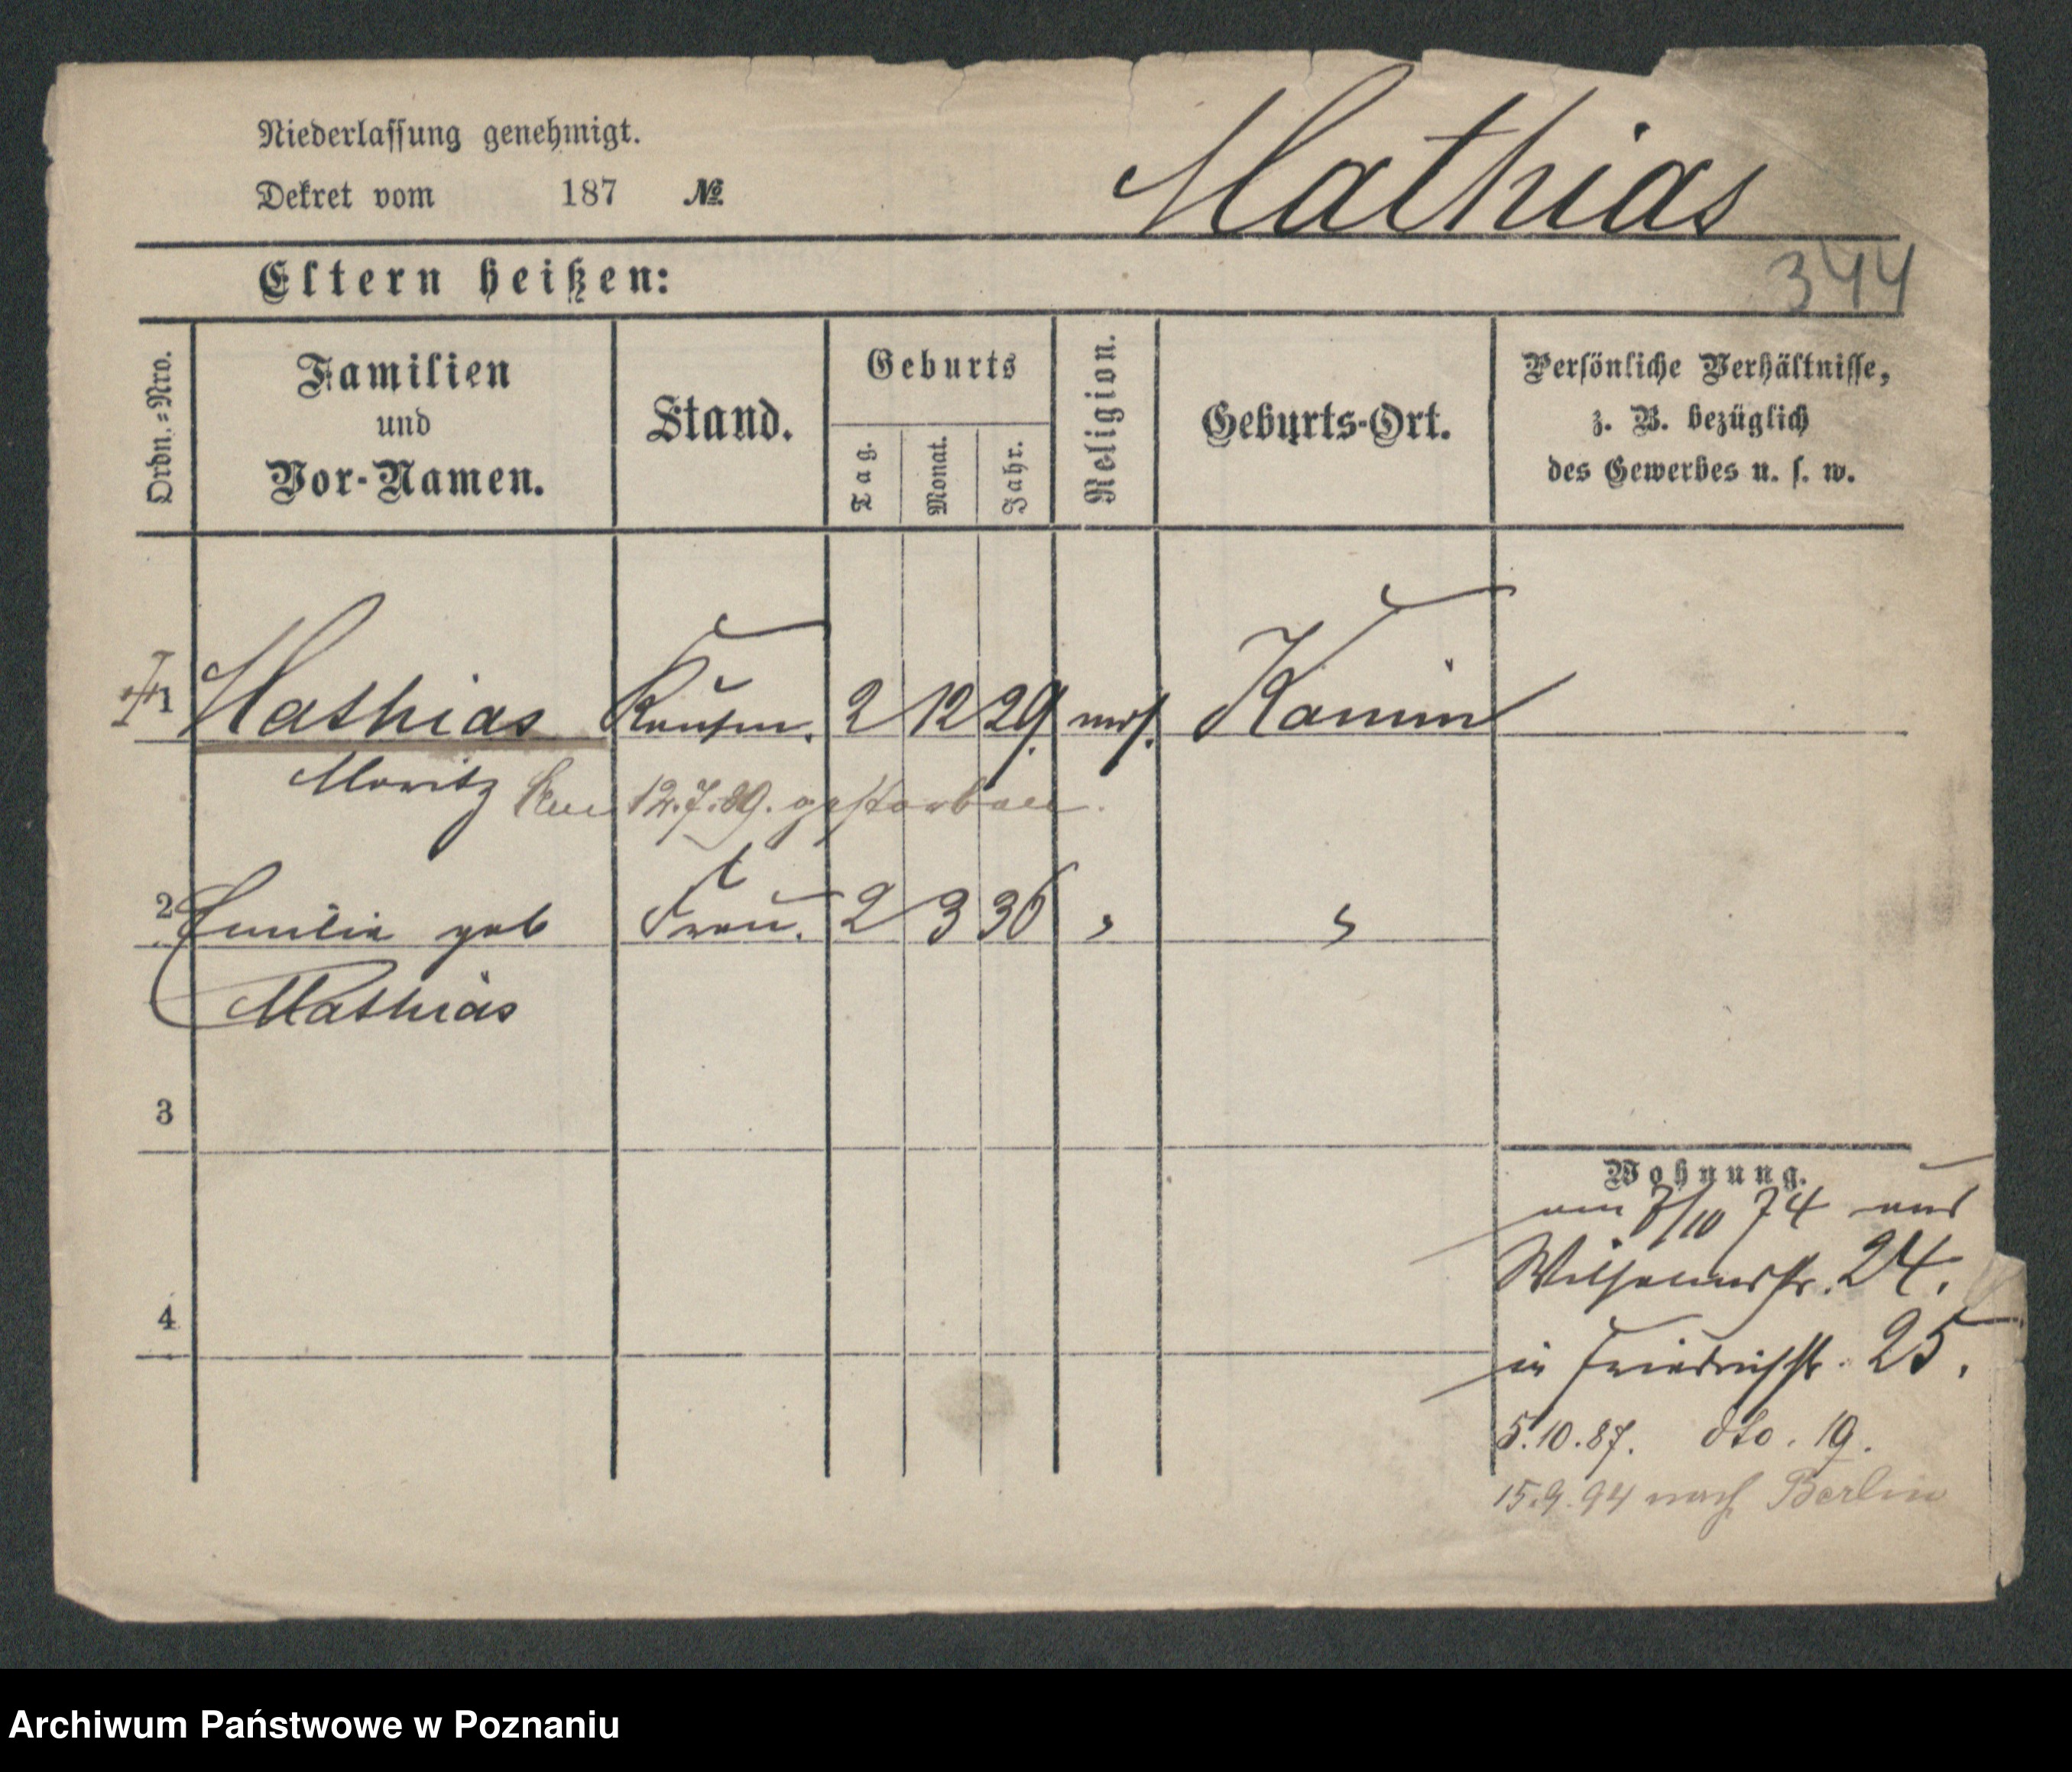 Niederlassung genehmigt.
Dekret vom 187 №
Mathias
344
Eltern heißen:
Ordn.=Nro.
Familien
und
Vor-Namen.
Stand.
Geburts
Tag.
Monat.
Jahr.
Religion.
Geburts-Ort.
Persönliche Verhältnisse,
z. B. bezüglich
des Gewerbes u. s. w.
1 Mathias Kaufm. 2 12 29. mos. Kamin
Moritz
12.7.89. gestorben.
2 Emilie geb Frau. 2 3 36 " "
Mathias
3
4
Wohnung.
am 7/10 74 aus
Wilhelmstr. 24.
in Friedrichstr. 25.
5.10.87. dto. 19.
15.9.94 nach Berlin
Archiwum Państwowe w Poznaniu